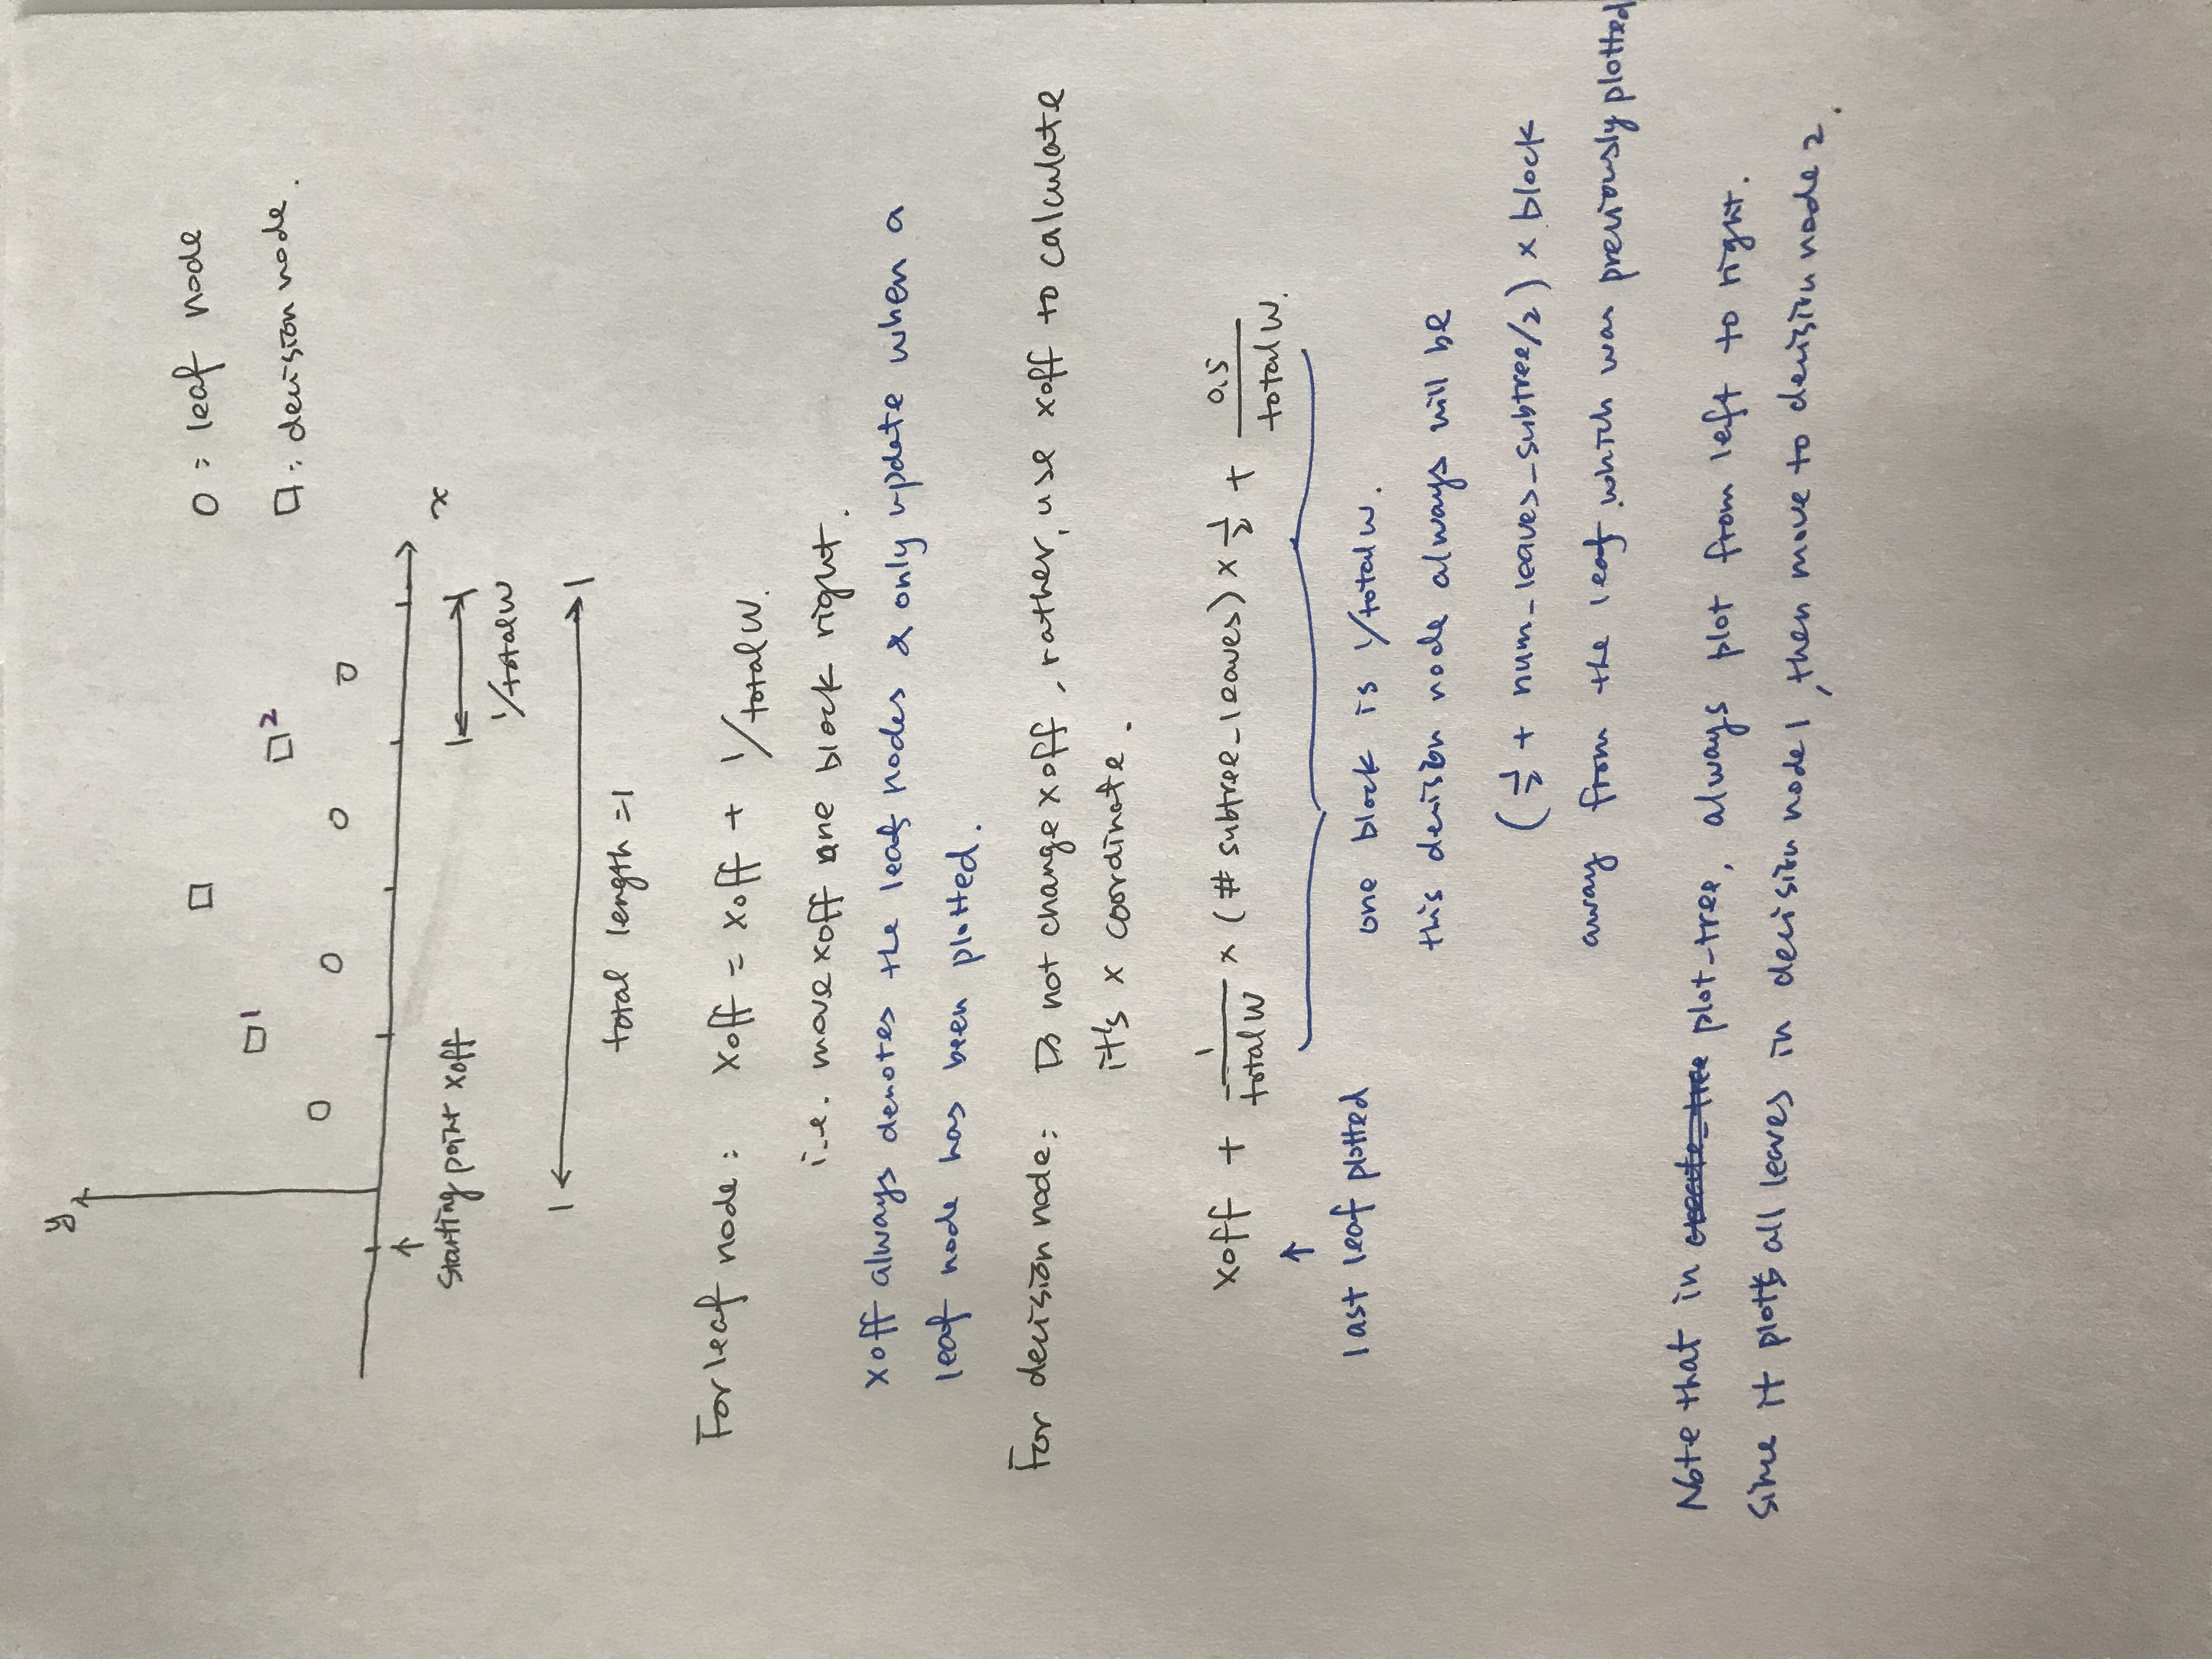 y
O : leaf node
1
2
□ : decision node.
x
starting point xoff
1/totalW
total length = 1
For leaf node : xoff = xoff + 1/totalW.
i.e. move xoff one block right.
xoff always denotes the leaf nodes & only update when a
leaf node has been plotted.
For decision node : Do not change xoff, rather, use xoff to calculate
it's x coordinate.
xoff + 1/totalW × (# subtree_leaves) × 1/2 + 0.5/totalW.
↑
last leaf plotted
one block is 1/totalW.
this decision node always will be
(1/2 + num_leaves_subtree/2) × block
away from the leaf which was previously plotted
Note that in create_tree plot_tree, always plot from left to right.
Since it plots all leaves in decision node 1, then move to decision node 2.